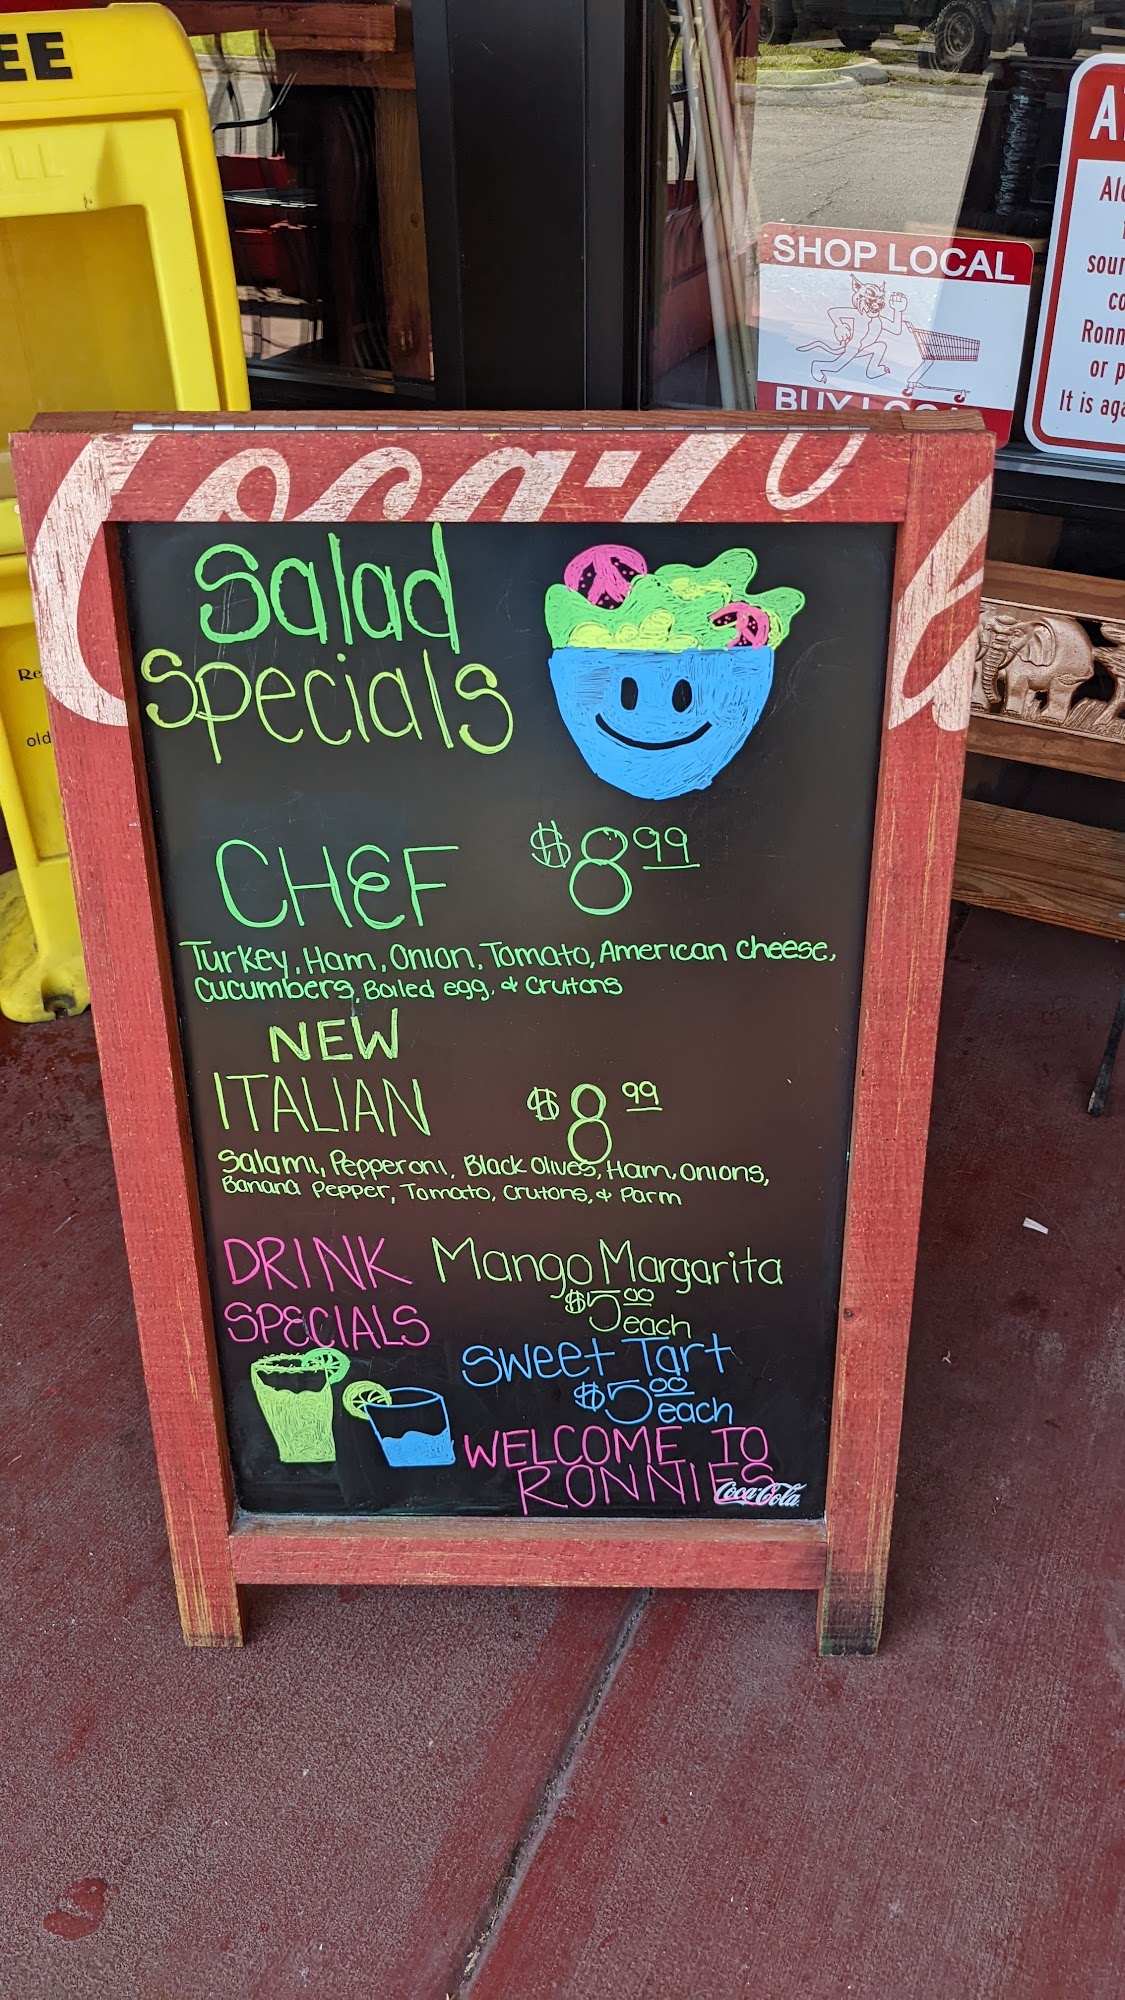 EE
SHOP LOCAL
Coca-Co
Salad
Specials
CHEF $8.99
Turkey, Ham, Onion, Tomato, American cheese,
Cucumbers, Boiled egg, & Crutons
NEW
ITALIAN $8.99
Salami, Pepperoni, Black Olives, Ham, Onions,
Banana Pepper, Tomato, Crutons, & Parm
DRINK
SPECIALS
Mango Margarita
$5.00
each
Sweet Tart
$5.00
each
WELCOME TO
RONNIES
Coca-Cola
or p
It is aga
old